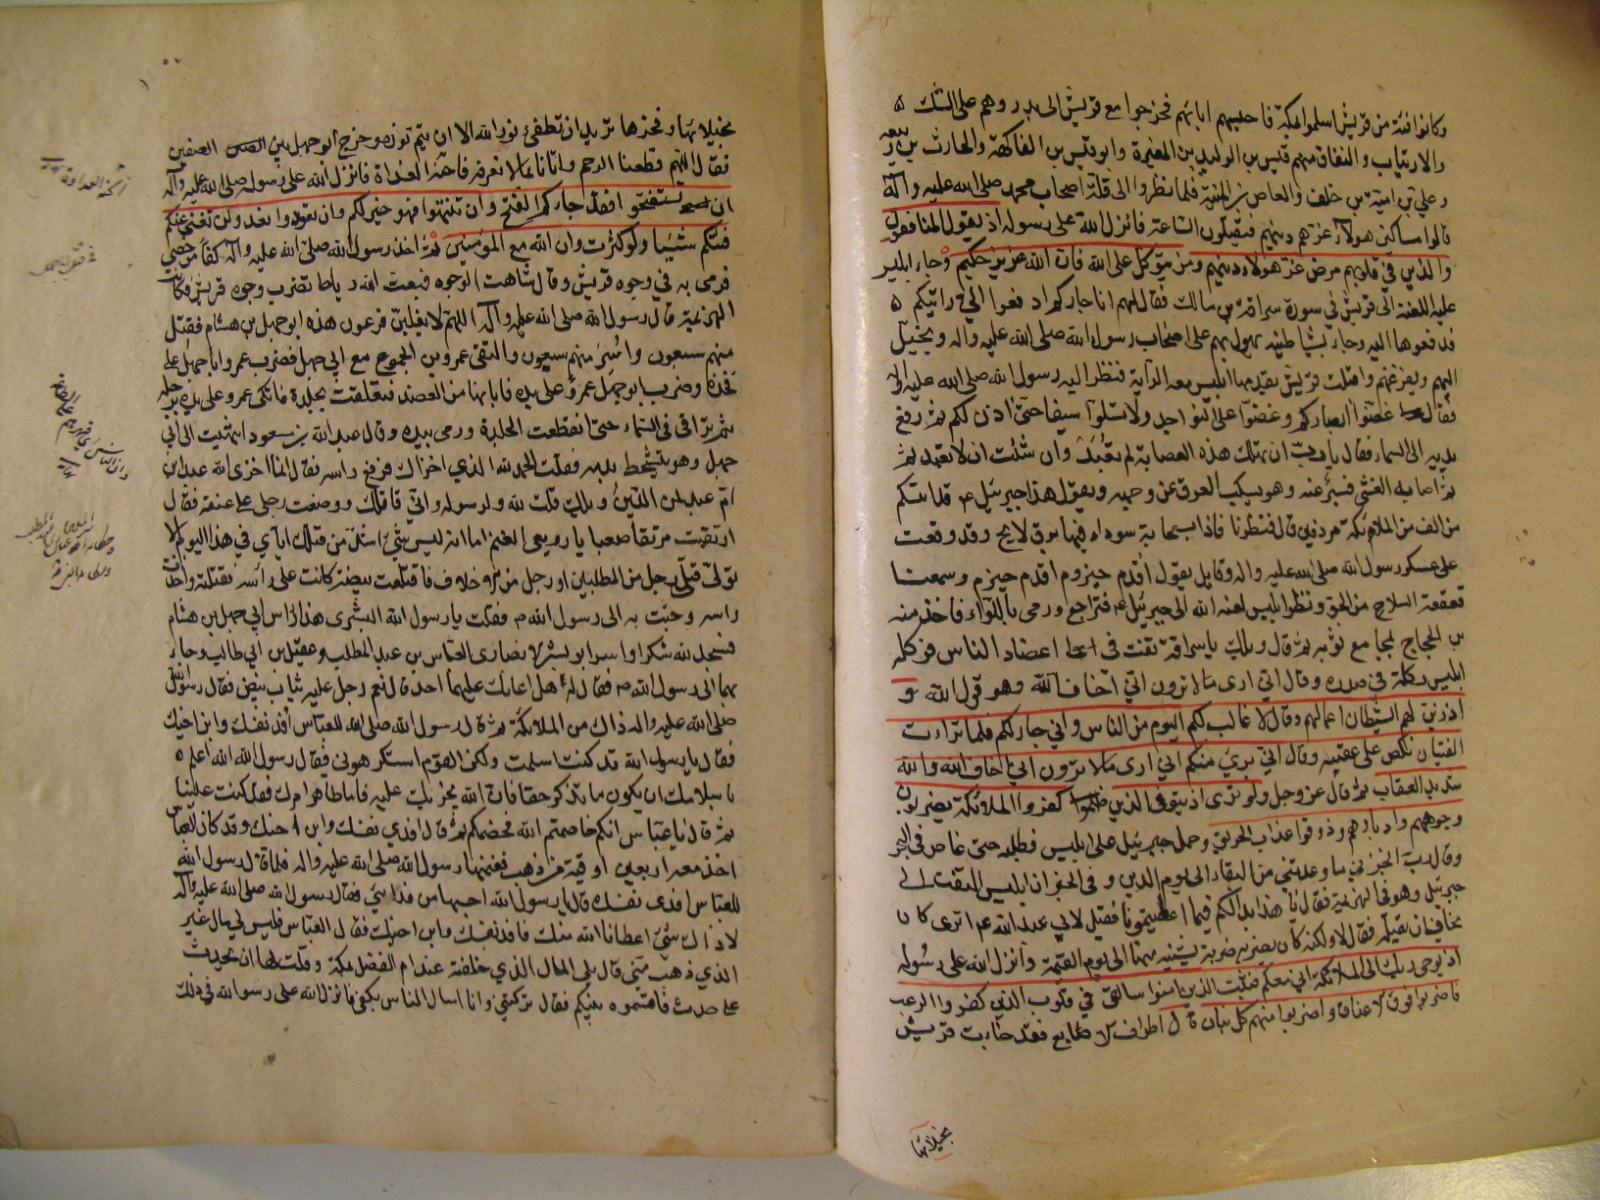 وكانوا فئة من قريش اسلموا بمكة فاحبسهم اباءهم فخرجوا مع قريش الى بدر وهم على الشك
والارتياب والنفاق منهم قيس بن الوليد بن المغيرة وابو قيس بن الفاكهة والحارث بن ربيعة
وعلي بن امية بن خلف والعاص بن المنبه فلما نظروا الى قلة اصحاب محمد صلى الله عليه وآله
قالوا مساكين هولاء غرهم دينهم فيقتلون الساعة فانزل الله على رسوله اذ يقول المنافقون
والذين في قلوبهم مرض غر هولاء دينهم ومن يتوكل على الله فان الله عزيز حكيم وجاء ابليس
عليه اللعنة الى قريش في صورة سراقة بن مالك فقال لهم انا جاركم ادفعوا الي رايتكم
فدفعوها اليه وجاء بشياطينه يهول بهم على اصحاب رسول الله صلى الله عليه واله ويخيل
اليهم ويفزعهم واقبلت قريش يقدمها ابليس معه الراية فنظر اليه رسول الله صلى الله عليه واله
فقال غضوا ابصاركم وعضوا على النواجد ولا تسلوا سيفا حتى اذن لكم ثم رفع
يديه الى السماء فقال يا رب ان تهلك هذه العصابة لم تعبد وان شئت ان لا تعبد لا تعبد
ثم اصابه الغشي فسري عنه وهو يسكب العرق عن وجهه ويقول هذا جبرئيل قد اتيكم
من الف من الملائكة مردفين قال فنظرنا فاذا بسحابة سوداء فيها برق لايح وقد وقعت
على عسكر رسول الله صلى الله عليه واله وقايل يقول اقدم حيزوم اقدم حيزوم وسمعنا
قعقعة السلاح من الجو ونظر ابليس لعنه الله الى جبرئيل فتراجع ورمى باللواء فاخذ منبه
بن الحجاج بمجامع ثوبه ثم قال ويلك يا سراقة تفت في اعضاد الناس فركله
ابليس ركلة في صدره وقال اني ارى ما لا ترون اني اخاف الله وهو قول الله و
اذ زين لهم الشيطان اعمالهم وقال لا غالب لكم اليوم من الناس واني جار لكم فلما تراءت
الفئتان نكص على عقبيه وقال اني بريء منكم اني ارى ما لا ترون اني اخاف الله والله
شديد العقاب ثم قال عز وجل ولو ترى اذ يتوفى الذين كفروا الملائكة يضربون
وجوههم وادبارهم وذوقوا عذاب الحريق وحمل جبرئيل على ابليس فطلبه حتى غاص في البحر
وقال رب انجز لي ما وعدتني من البقاء الى يوم الدين وفي الخبر ان ابليس التفت الى
جبرئيل وهو في الهزيمة فقال يا هذا بدا لكم فيما اعطيتمونا فقيل لابي عبد الله اترى كان
يخاف ان يقتله فقال لا ولكنه كان يضربه ضربة يشينه منها الى يوم القيمة وانزل الله على رسوله
اذ يوحي ربك الى الملائكة اني معكم فثبتوا الذين امنوا سالقي في قلوب الذين كفروا الرعب
فاضربوا فوق الاعناق واضربوا منهم كل بنان قال اطراف الاصابع فقد جاءت قريش
بخيلائها
بخيلائها وفخرها تريد ان تطفئ نور الله الا ان يتم نوره وخرج ابو جهل من بين الصفين
فقال اللهم قطعنا الرحم واتانا بما لا نعرفه فاحنه الغداة فانزل الله على رسوله صلى الله عليه وآله
ان تستفتحوا فقد جاءكم الفتح وان تنتهوا فهو خير لكم وان تعودوا نعد ولن تغني عنكم
فئتكم شيئا ولو كثرت وان الله مع المؤمنين ثم اخذ رسول الله صلى الله عليه وآله كفا من حصى
فرمى به في وجوه قريش وقال شاهت الوجوه فبعث الله رياحا تضرب وجوه قريش فكانت
الهزيمة قال رسول الله صلى الله عليه وآله اللهم لا يفلتن فرعون هذه ابو جهل بن هشام فقتل
منهم سبعون واسر منهم سبعون والتقى عمرو بن الجموح مع ابي جهل فضرب عمرو ابا جهل على
فخذه وضرب ابو جهل عمرو على يده فابانها من العضد فتعلقت بجلدة فاتكى عمرو على يده برجله
ثم تراقى في السماء حتى انقطعت الجلدة ورمى بيده وقال عبد الله بن مسعود انتهيت الى ابي
جهل وهو يتشحط بدمه فقلت الحمد لله الذي اخزاك فرفع راسه فقال انما اخزى الله عبد ابن
ام عبد لمن الدين ويلك قلت لله ولرسوله واني قاتلك ووضعت رجلي على عنقه فقال
ارتقيت مرتقا صعبا يا رويعي الغنم اما انه ليس شيء اشد من قتلك اياي في هذا اليوم الا
تولى قتلي رجل من المطلبين او رجل من الاحلاف فاقتلعت بيضة كانت على راسه فقتلته واخذت
راسه وجئت به الى رسول الله فقلت يا رسول الله البشرى هذا راس ابي جهل بن هشام
فسجد لله شكرا واسر ابو بشر الانصاري العباس بن عبد المطلب وعقيل بن ابي طالب وجاء
بهما الى رسول الله فقال له هل اعانك عليهما احد قال نعم رجل عليه ثياب بيض فقال رسول الله
صلى الله عليه واله ذاك من الملائكة ثم قال رسول الله صلى الله للعباس افد نفسك وابن اخيك
فقال يا رسول الله قد كنت اسلمت ولكن القوم استكرهوني فقال رسول الله الله اعلم
باسلامك ان يكون ما تذكر حقا فان الله يجزيك عليه فاما ظاهر امرك فقد كنت علينا
ثم قال يا عباس انكم خاصمتم الله فخصمكم ثم قال افدي نفسك وابن اخيك وقد كان العباس
اخذ معه اربعين اوقية من ذهب فغنمها رسول الله صلى الله عليه واله فلما قال رسول الله
للعباس افدى نفسك قال يا رسول الله احسبها من فدائي فقال رسول الله صلى الله عليه وآله
لا ذاك شيء اعطانا الله منك فافد نفسك وابن اخيك فقال العباس فليس لي مال غير
الذي ذهب مني قال بلى المال الذي خلفته عند ام الفضل بمكة وقلت لها ان يحدث
علي حدث فاقسموه بينكم فقال تتركني وانا اسال الناس بكفي فانزل الله على رسوله في ذلك